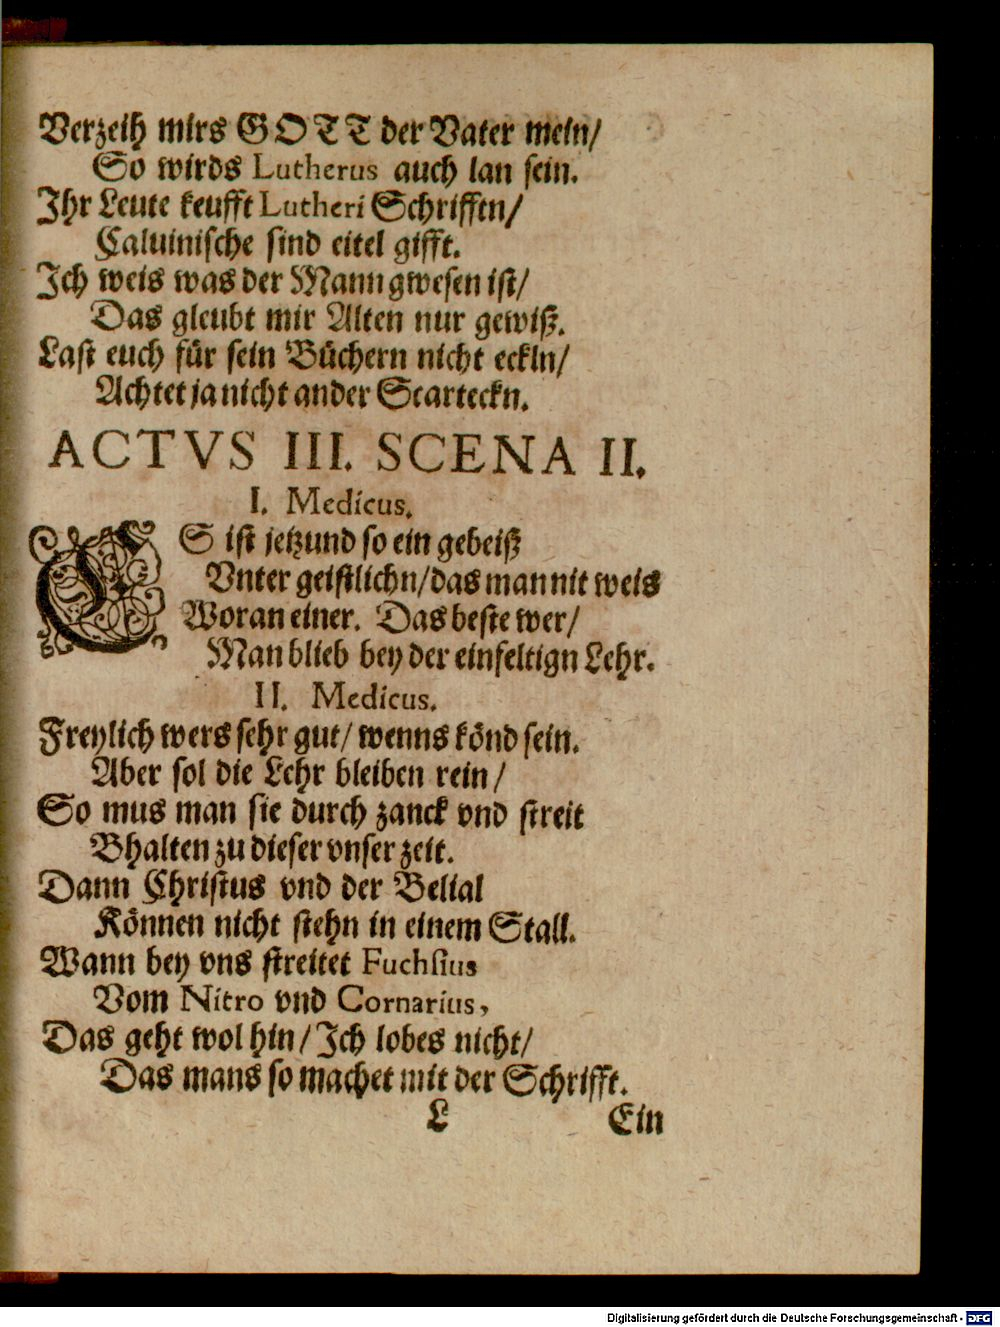 Verzeih mirs GOTT der Vater mein/
So wirds Lutherus auch lan sein.
Ihr Leute keufft Lutheri Schrifftn/
Caluinische sind eitel gifft.
Ich weis was der Mann gwesen ist/
Das gleubt mir Alten nur gewiß.
Last euch für sein Büchern nicht eckln/
Achtet ja nicht ander Scarteckn.
ACTVS III. SCENA II.
I. Medicus.
ES ist jetzund so ein gebeiß
Vnter geistlichn/das man nit weis
Woran einer. Das beste wer/
Man blieb bey der einfeltign Lehr.
II. Medicus.
Freylich wers sehr gut/ wenns könd sein.
Aber sol die Lehr bleiben rein/
So mus man sie durch zanck vnd streit
Bhalten zu dieser vnser zeit.
Dann Christus vnd der Belial
Können nicht stehn in einem Stall.
Wann bey vns streitet Fuchsius
Vom Nitro vnd Cornarius,
Das geht wol hin/ Ich lobes nicht/
Das mans so machet mit der Schrifft.
L Ein
Digitalisierung gefördert durch die Deutsche Forschungsgemeinschaft - DFG